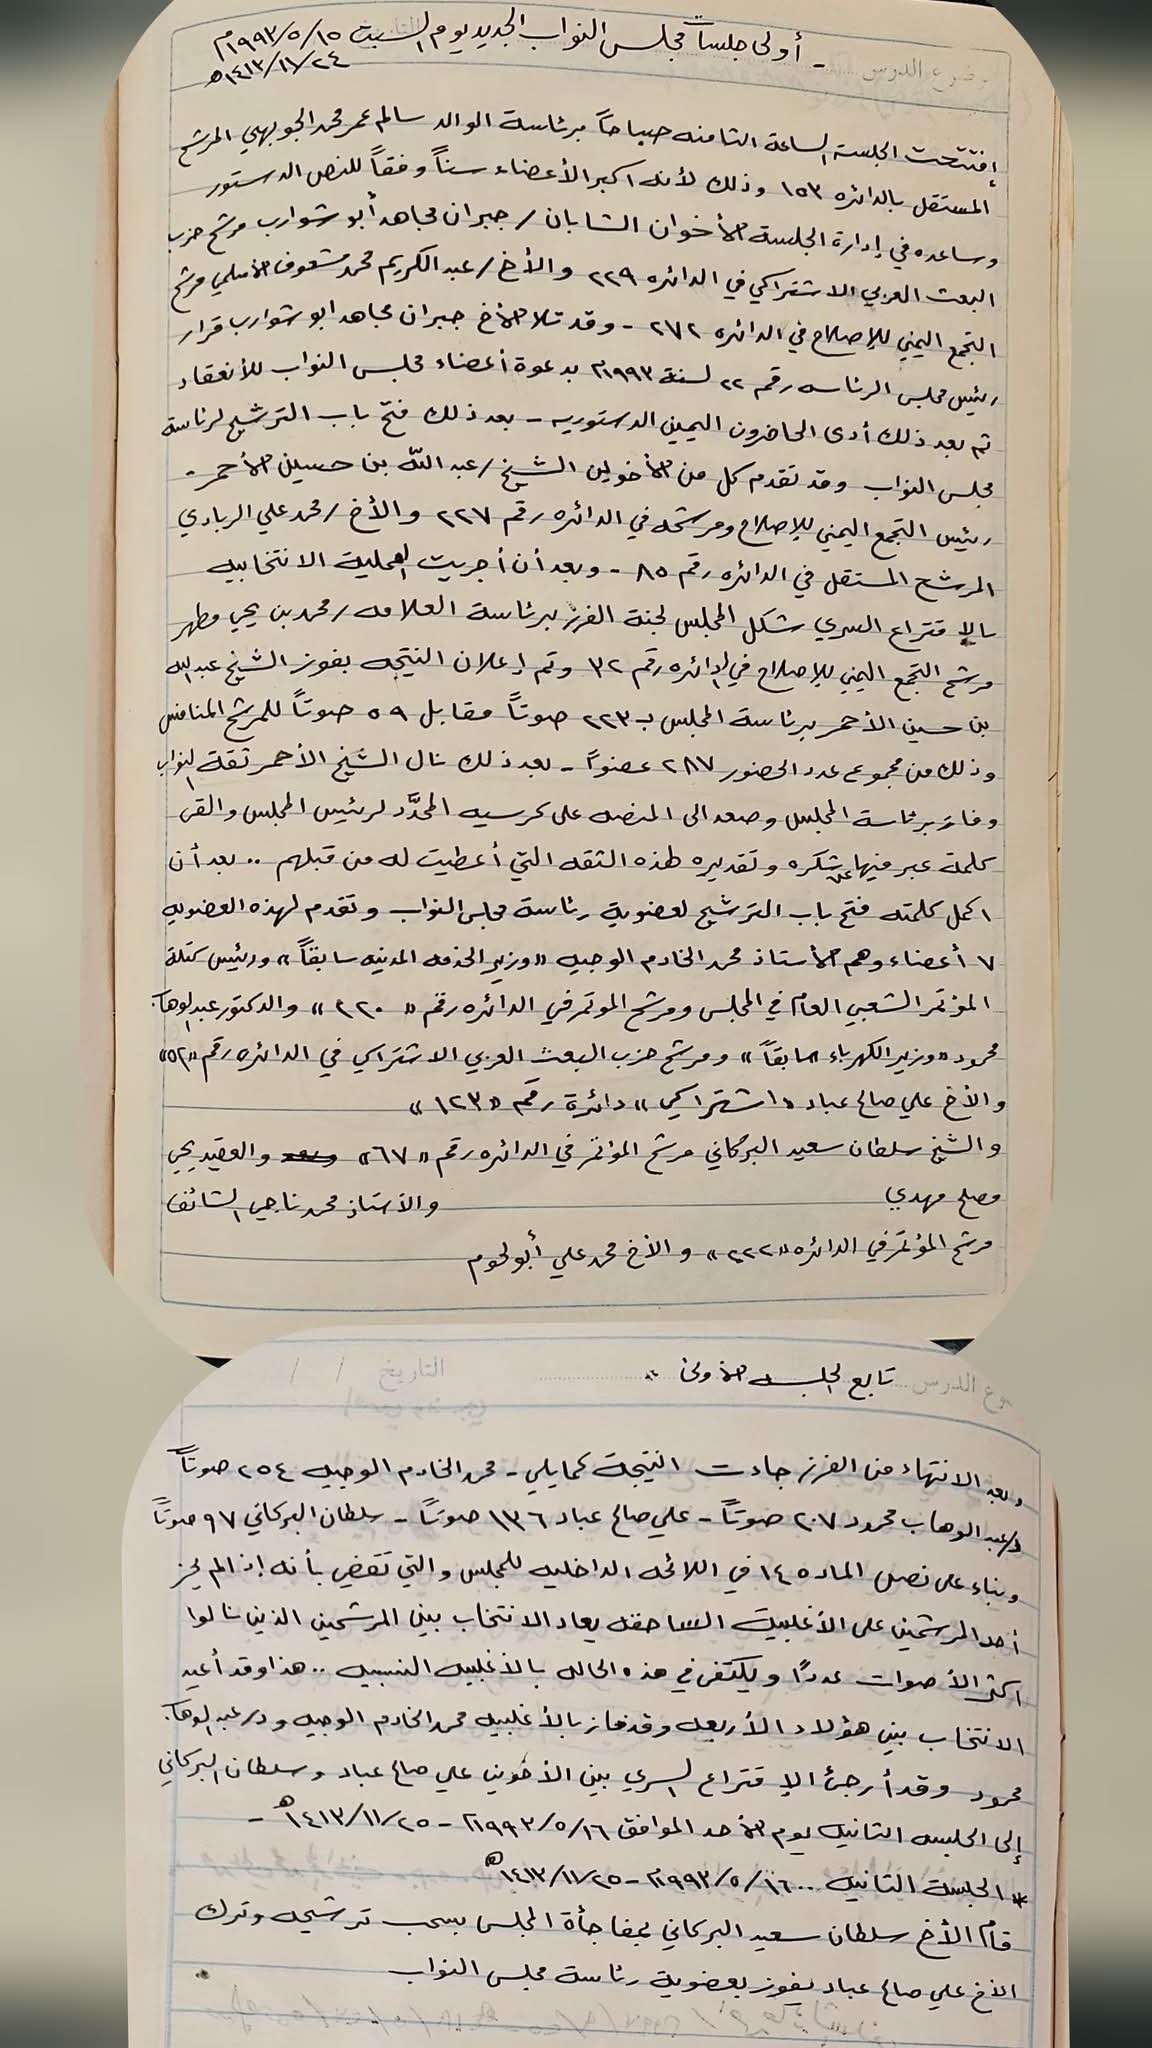 - أولى جلسات مجلس النواب الجديد يوم السبت ١٥/٥/١٩٩٣م
٢٤/١١/١٤١٣ھ
إفتتحت الجلسة الساعة الثامنه صباحاً برئاسة الوالد سالم عمر محمد الجوبهي المرشح
المستقل بالدائره ١٥٣ وذلك لأنه اكبر الأعضاء سناً وفقاً للنص الدستور
وساعده في إدارة الجلسة الأخوان الشابان / جبران مجاهد أبو شوارب مرشح حزب
البعث العربي الاشتراكي في الدائره ٢٢٩ والأخ / عبد الكريم محمد مشعوف الأسلمي مرشح
التجمع اليمني للإصلاح في الدائره ٢٧٢ - وقد تلا الأخ جبران مجاهد ابو شوارب قرار
رئيس مجلس الرئاسه رقم ٢٢ لسنة ١٩٩٣م بدعوة أعضاء مجلس النواب للأنعقاد
ثم بعد ذلك أدى الحاضرون اليمين الدستوريه - بعد ذلك فتح باب الترشيح لرئاسة
مجلس النواب وقد تقدم كل من الأخوين الشيخ / عبد الله بن حسين الأحمر -
رئيس التجمع اليمني للإصلاح ومرشحه في الدائره رقم ٢٢٧ والأخ / محمد علي الربادي
المرشح المستقل في الدائره رقم ٨٥ - وبعد أن أجريت العملية الانتخابيه
بالإقتراع السري شكل المجلس لجنة الفرز برئاسة العلامه / محمد بن يحي مطهر
مرشح التجمع اليمني للإصلاح في الدائره رقم ٣٢ وتم إعلان النتيجه بفوز الشيخ عبد الله
بن حسين الأحمر برئاسة المجلس بـ ٢٢٣ صوتاً مقابل ٥٩ صوتاً للمرشح المنافس
وذلك من مجموع عدد الحضور ٢٨٧ عضواً - بعد ذلك نال الشيخ الأحمر ثقة النواب
وفاز برئاسة المجلس وصعد الى المنصه على كرسيه المحدَّد لرئيس المجلس والقى
كلمة عبر فيها عن شكره وتقديره لهذه الثقه التي أعطيت له من قبلهم .. بعد أن
اكمل كلمته فتح باب الترشيح لعضوية رئاسة مجلس النواب وتقدم لهذه العضويه
٧ أعضاء وهم الأستاذ محمد الخادم الوجيه «وزير الخدمه المدنيه سابقاً» ورئيس كتلة
المؤتمر الشعبي العام في المجلس ومرشح الموتمر في الدائره رقم «٢٢٠» والدكتور عبد الوهاب
محمود «وزير الكهرباء سابقاً» ومرشح حزب البعث العربي الاشتراكي في الدائره رقم «٥٢»
والأخ علي صالح عباد «اشتراكي» دائرة رقم «١٢٣»
والشيخ سلطان سعيد البركاني مرشح المؤتمر في الدائره رقم «٦٧» والعقيد يحي
مصلح مهدي والأستاذ محمد ناجي الشائف
مرشح المؤتمر في الدائره «٢٢٢» والأخ محمد علي أبو لحوم
موضوع الدرس
تابع الجلسه الأولى ..
التاريخ / /
وبعد الانتهاء من الفرز جاءت النتيجة كمايلي - محمد الخادم الوجيه ٢٥٤ صوتاً
د/عبد الوهاب محمود ٢٠٧ صوتاً - علي صالح عباد ١٣٦ صوتاً - سلطان البركاني ٩٧ صوتاً
وبناء على نص الماده ١٤٥ في اللائحه الداخليه للمجلس والتي تقضي بأنه إذا لم يحز
أحد المرشحين على الأغلبية الساحقه يعاد الانتخاب بين المرشحين الذين نالوا
اكثر الأصوات عدداً ويكتفى في هذه الحاله بالأغلبيه النسبيه .. هذا وقد أعيد
الانتخاب بين هؤلاء الأربعه وقد فاز بالأغلبيه محمد الخادم الوجيه ود/عبد الوهاب
محمود وقد أرجئ الإقتراع السري بين الأخوين علي صالح عباد وسلطان البركاني
إلى الجلسه الثانيه يوم الأحد الموافق ١٦/٥/١٩٩٣م - ٢٥/١١/١٤١٣ھ -
* الجلسة الثانيه .. ١٦/٥/١٩٩٣م - ٢٥/١١/١٤١٣ھ
قام الأخ سلطان سعيد البركاني بمفاجأة المجلس بسحب ترشيحه وترك
الأخ علي صالح عباد يفوز بعضوية رئاسة مجلس النواب